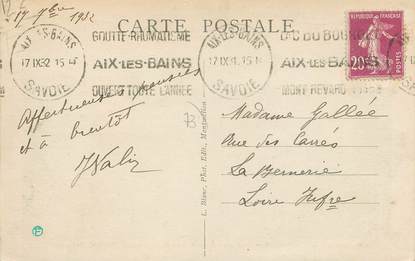 17 7bre 1932
CARTE POSTALE
AIX-LES-BAINS
17 IX 32 15
SAVOIE
GOUTTE-RHUMATISME
AIX-LES-BAINS
OUVERT TOUTE L'ANNÉE
AIX-LES-BAINS
17 IX 32 15
SAVOIE
LAC DU BOURGET
AIX-LES-BAINS
MONT REVARD
20
POSTES
Affectueuses pensées
et à bientôt
L. Blanc, Phot. Edit.,
Madame Gallée
Rue des Carrés
La Bernerie
Loire Infre